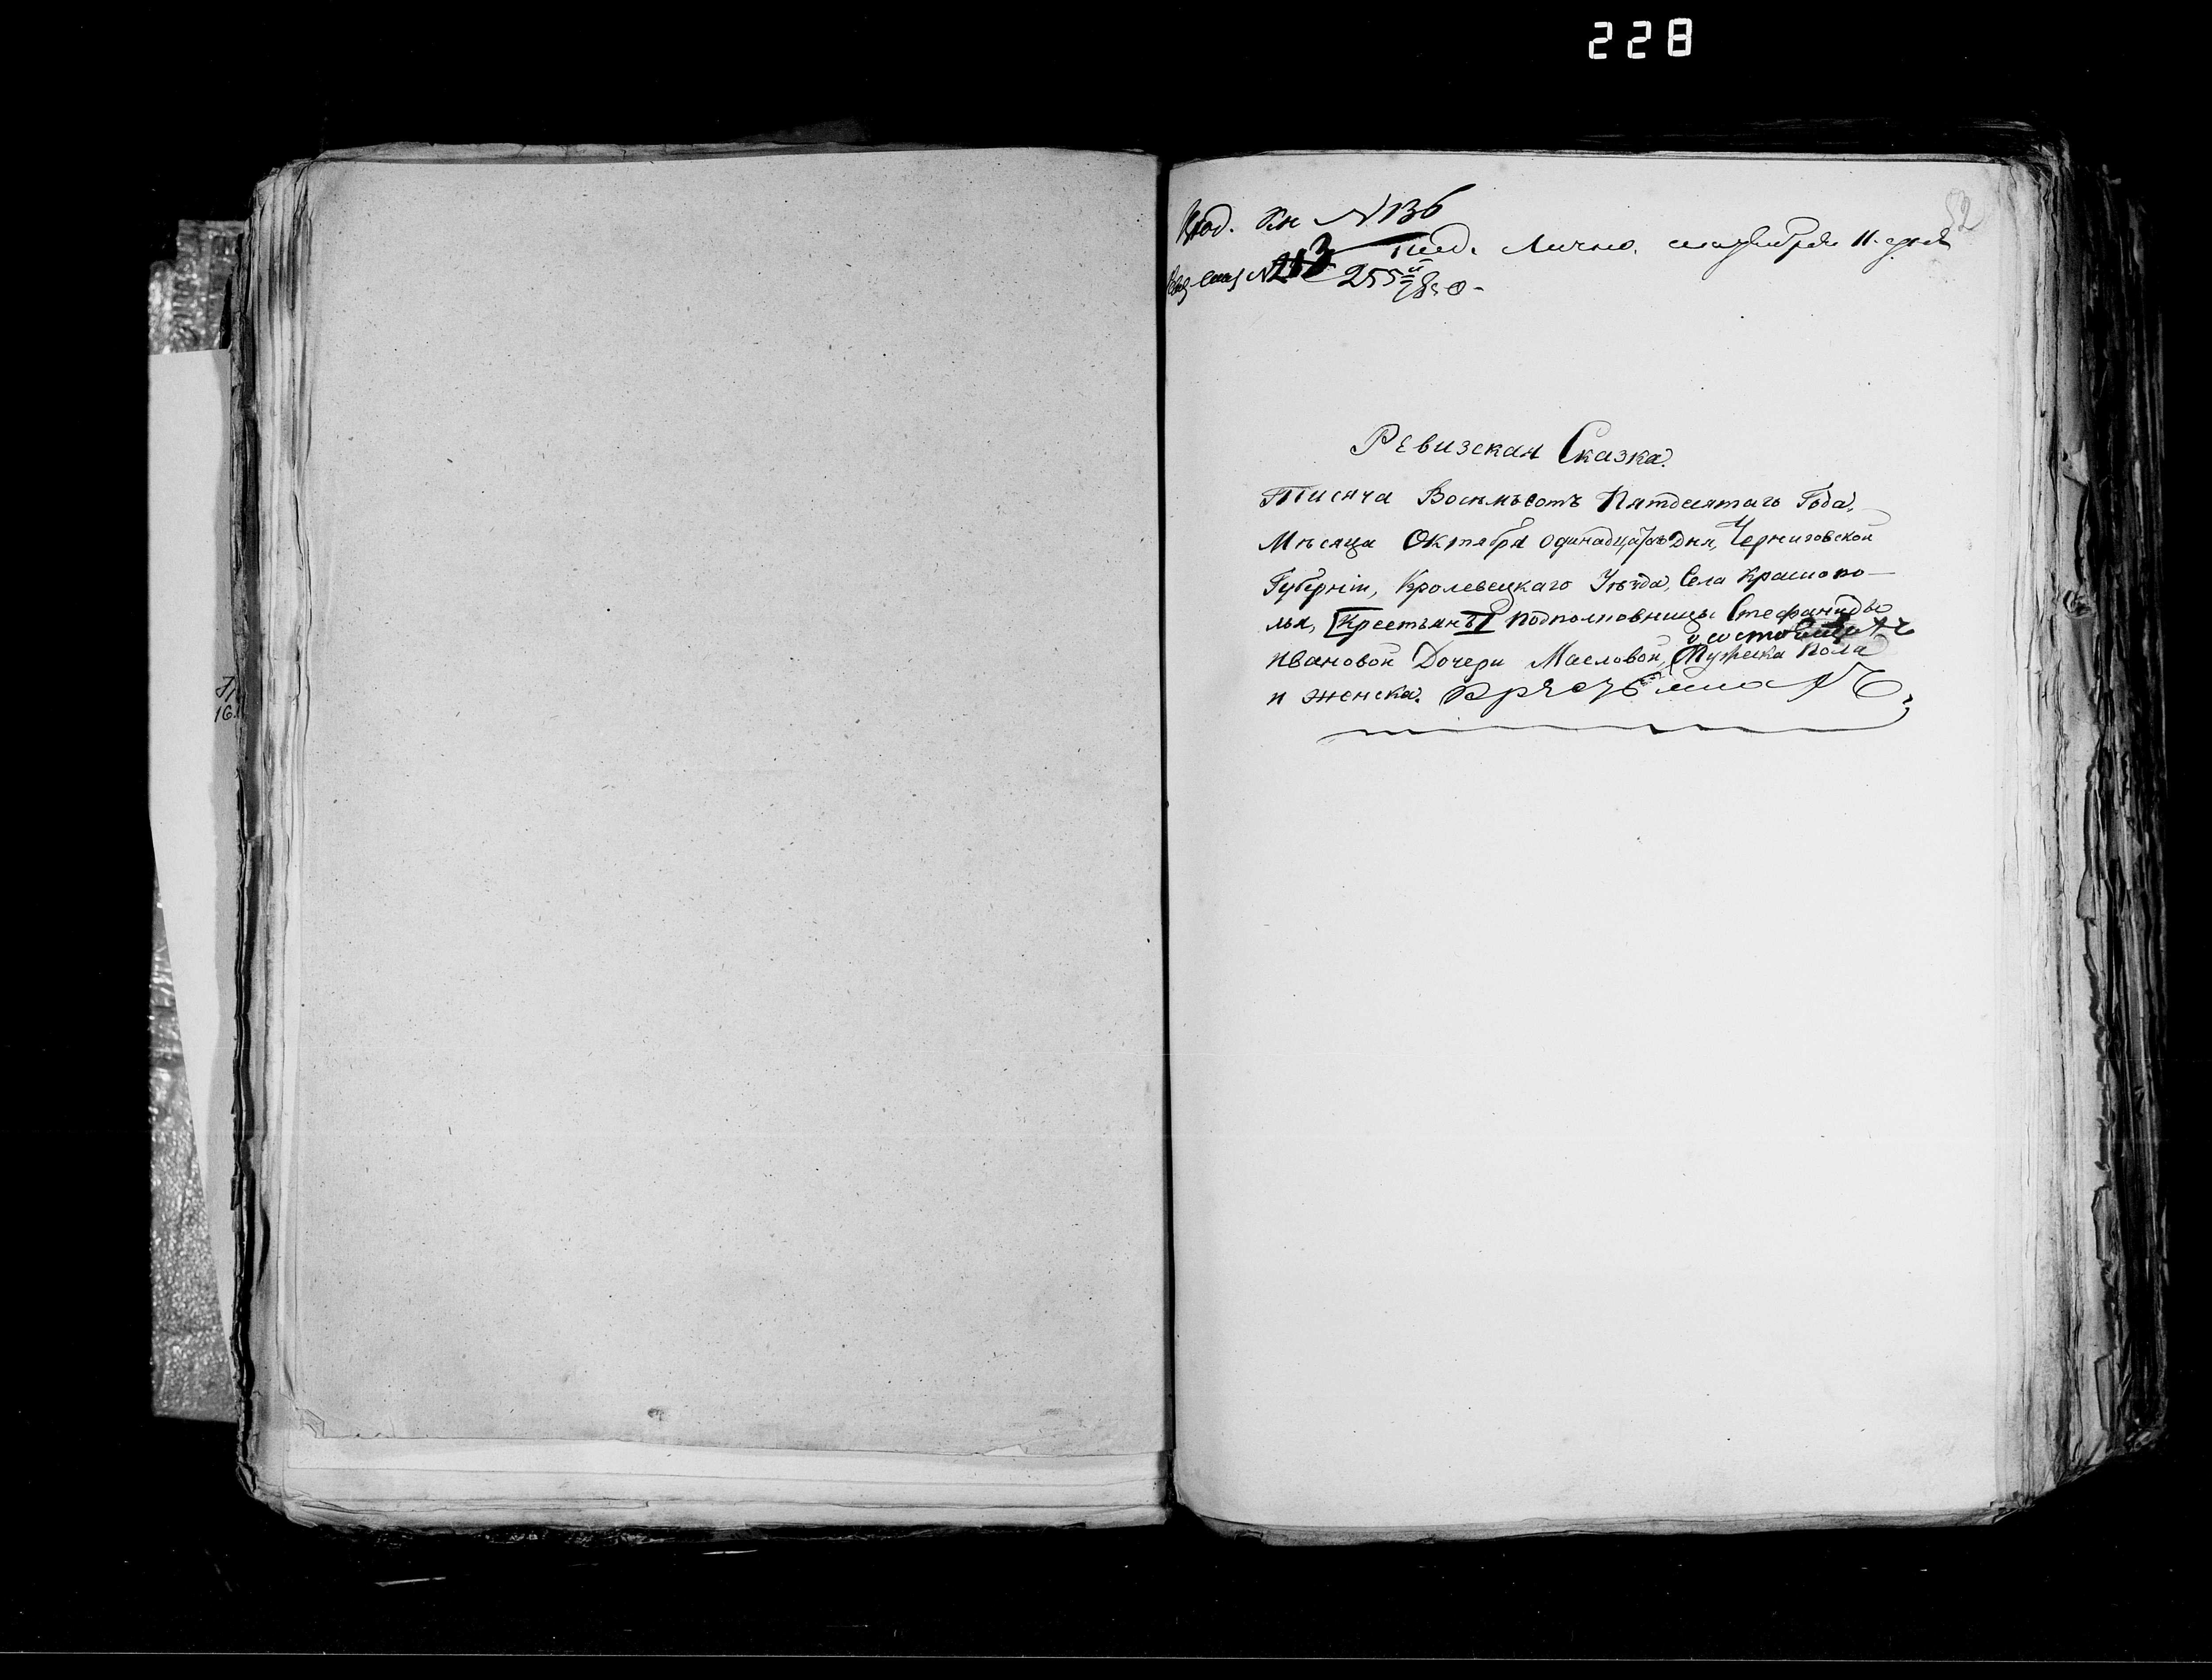 228
52
Вход. Кн №136
Под. Лично. 11. дня
№213 255й 1850-
Ревизская Сказка.
Тисяча Восемьсотъ Пятдесятаго Года,
Мѣсяца Октября одинадцатаго Дня, Черниговской
Губерніи, Кролевецкаго Уѣзда, Села Краснопо-
лья, Крестьянъ подполковницы Стефаниды
о состоящихъ
Ивановой Дочери Масловой, Мужеска пола
и женска. Крестьянахъ.